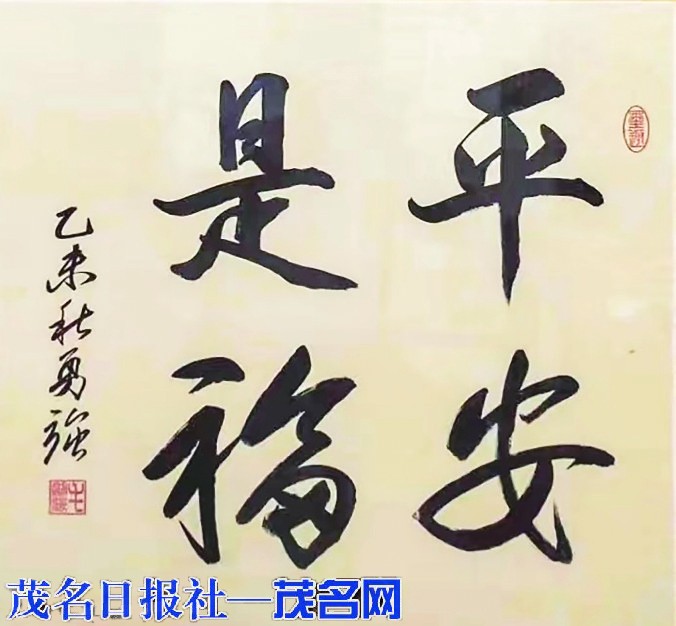 平安
是福
乙未秋勇强
茂名日报社—茂名网